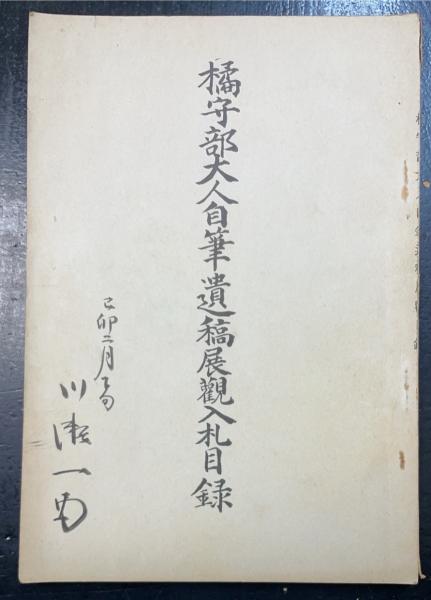 橘守部大人自筆遺稿展觀入札目録
己卯二月
川瀬一馬